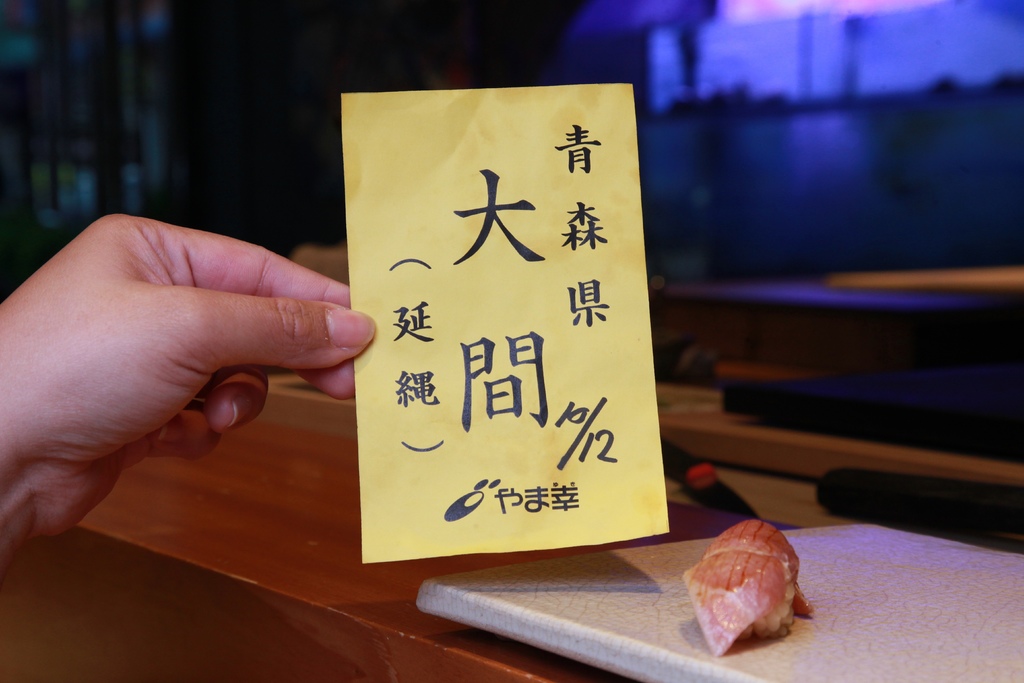 青森県
大間
(延縄)
10/12
やま幸